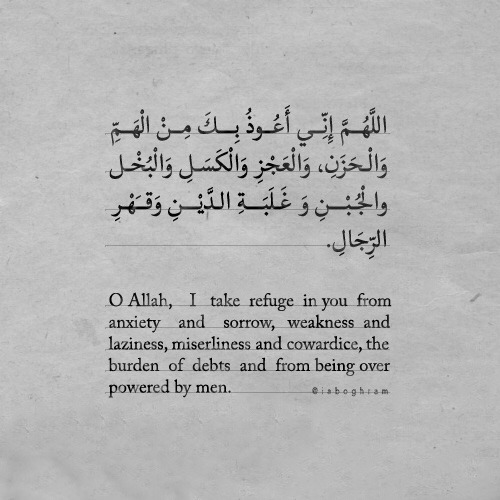 اللَّهُمَّ إِنِّي أَعُوذُ بِكَ مِنْ الْهَمِّ
وَالْحَزَنِ، وَالْعَجْزِ وَالْكَسَلِ وَالْبُخْلِ
والْجُبْنِ وَ غَلَبَةِ الدَّيْنِ وَقَهْرِ
الرِّجَالِ.
O Allah, I take refuge in you from
anxiety and sorrow, weakness and
laziness, miserliness and cowardice, the
burden of debts and from being over
powered by men.
@isboghram